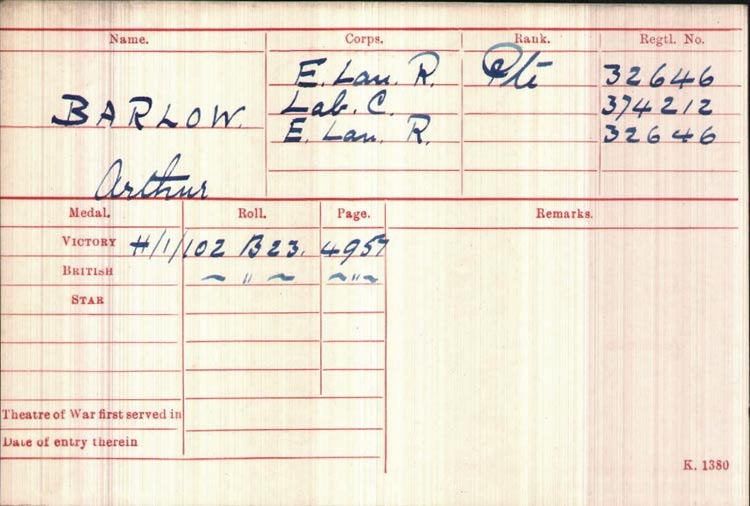 Name. Corps. Rank. Regtl. No.
E. Lan. R. Pte 32646
BARLOW. Lab. C. 374212
E. Lan. R. 32646
Arthur
Medal. Roll. Page. Remarks.
VICTORY H/1/102 B23. 4957
BRITISH ~ " ~ ~"~
STAR
Theatre of War first served in
Date of entry therein
K. 1380